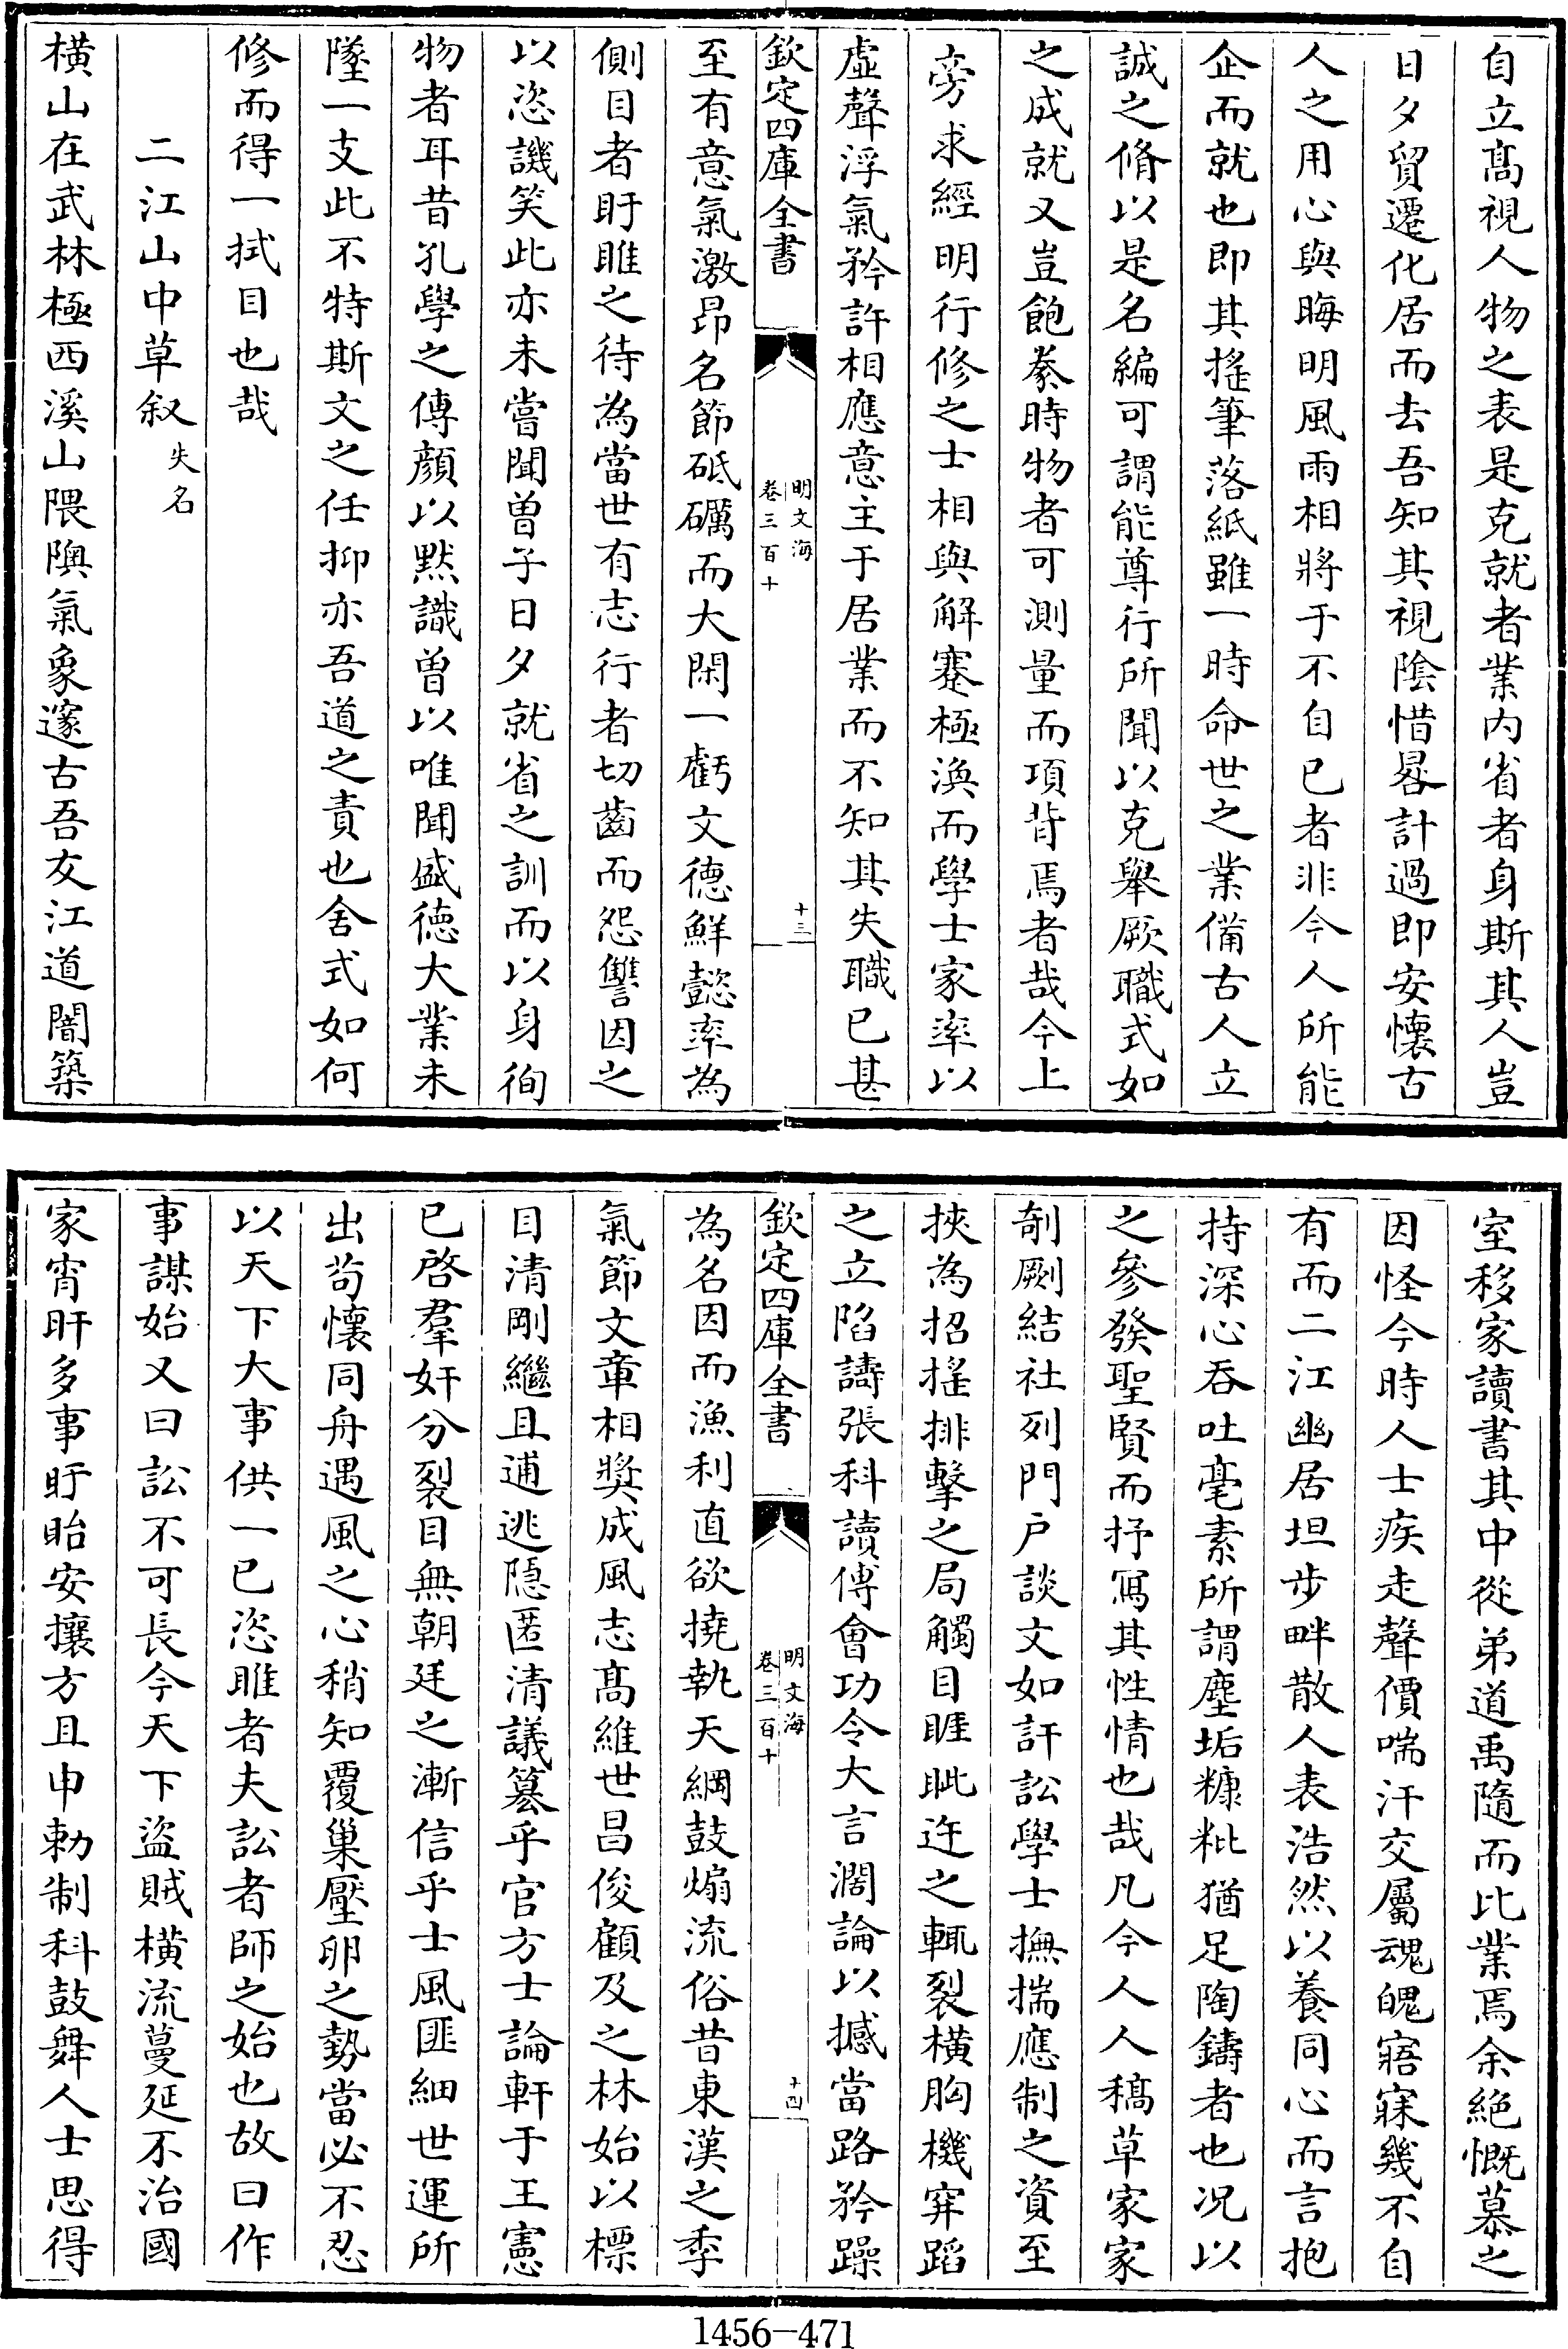 自立髙視人物之表是克就者業内省者身斯其人豈
日夕貿遷化居而去吾知其視陰惜晷計過即安懐古
人之用心與晦明風雨相將于不自已者非今人所能
企而就也即其揺筆落紙雖一時命世之業備古人立
誠之脩以是名編可謂能尊行所聞以克舉厥職式如
之成就又豈飽豢時物者可測量而項背焉者哉今上
旁求經明行修之士相與解蹇極渙而學士家率以
虚聲浮氣矜許相應意主于居業而不知其失職已甚
欽定四庫全書
明文海
卷三百十
十三
至有意氣激昂名節砥礪而大閑一虧文德鮮懿率為
側目者盱睢之待為當世有志行者切齒而怨讐因之
以恣譏笑此亦未嘗聞曾子日夕就省之訓而以身徇
物者耳昔孔學之傳顔以黙識曾以唯聞盛德大業未
墜一支此不特斯文之任抑亦吾道之責也舍式如何
修而得一拭目也哉
二江山中草叙失名
橫山在武林極西溪山隈隩氣象邃古吾友江道闇築
室移家讀書其中從弟道禹隨而比業焉余絕慨慕之
因怪今時人士疾走聲價喘汗交屬魂魄寤寐幾不自
有而二江幽居坦步畔散人表浩然以養同心而言抱
持深心吞吐毫素所謂塵垢糠粃猶足陶鑄者也况以
之參發聖賢而抒冩其性情也哉凡今人人稿草家家
剞劂結社列門户談文如訐訟學士撫揣應制之資至
挾為招揺排擊之局觸目睚眦迕之輒裂橫胸機穽蹈
之立陷譸張科讀傅會功令大言濶論以撼當路矜躁
欽定四庫全書
明文海
卷三百十
十四
為名因而漁利直欲撓執天綱鼓煽流俗昔東漢之季
氣節文章相奬成風志髙維世昌俊顧及之林始以標
目清剛繼且逋逃隠匿清議簒乎官方士論軒于王憲
已啓羣奸分裂目無朝廷之漸信乎士風匪細世運所
出茍懐同舟遇風之心稍知覆巢壓卵之勢當必不忍
以天下大事供一已恣睢者夫訟者師之始也故曰作
事謀始又曰訟不可長今天下盜賊橫流蔓延不治國
家宵旰多事盱眙安攘方且申勅制科鼓舞人士思得
1456-471